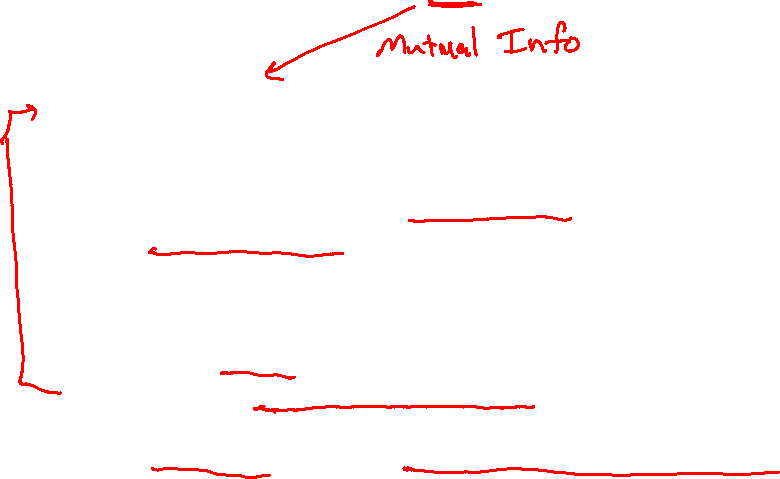 Mutual Info